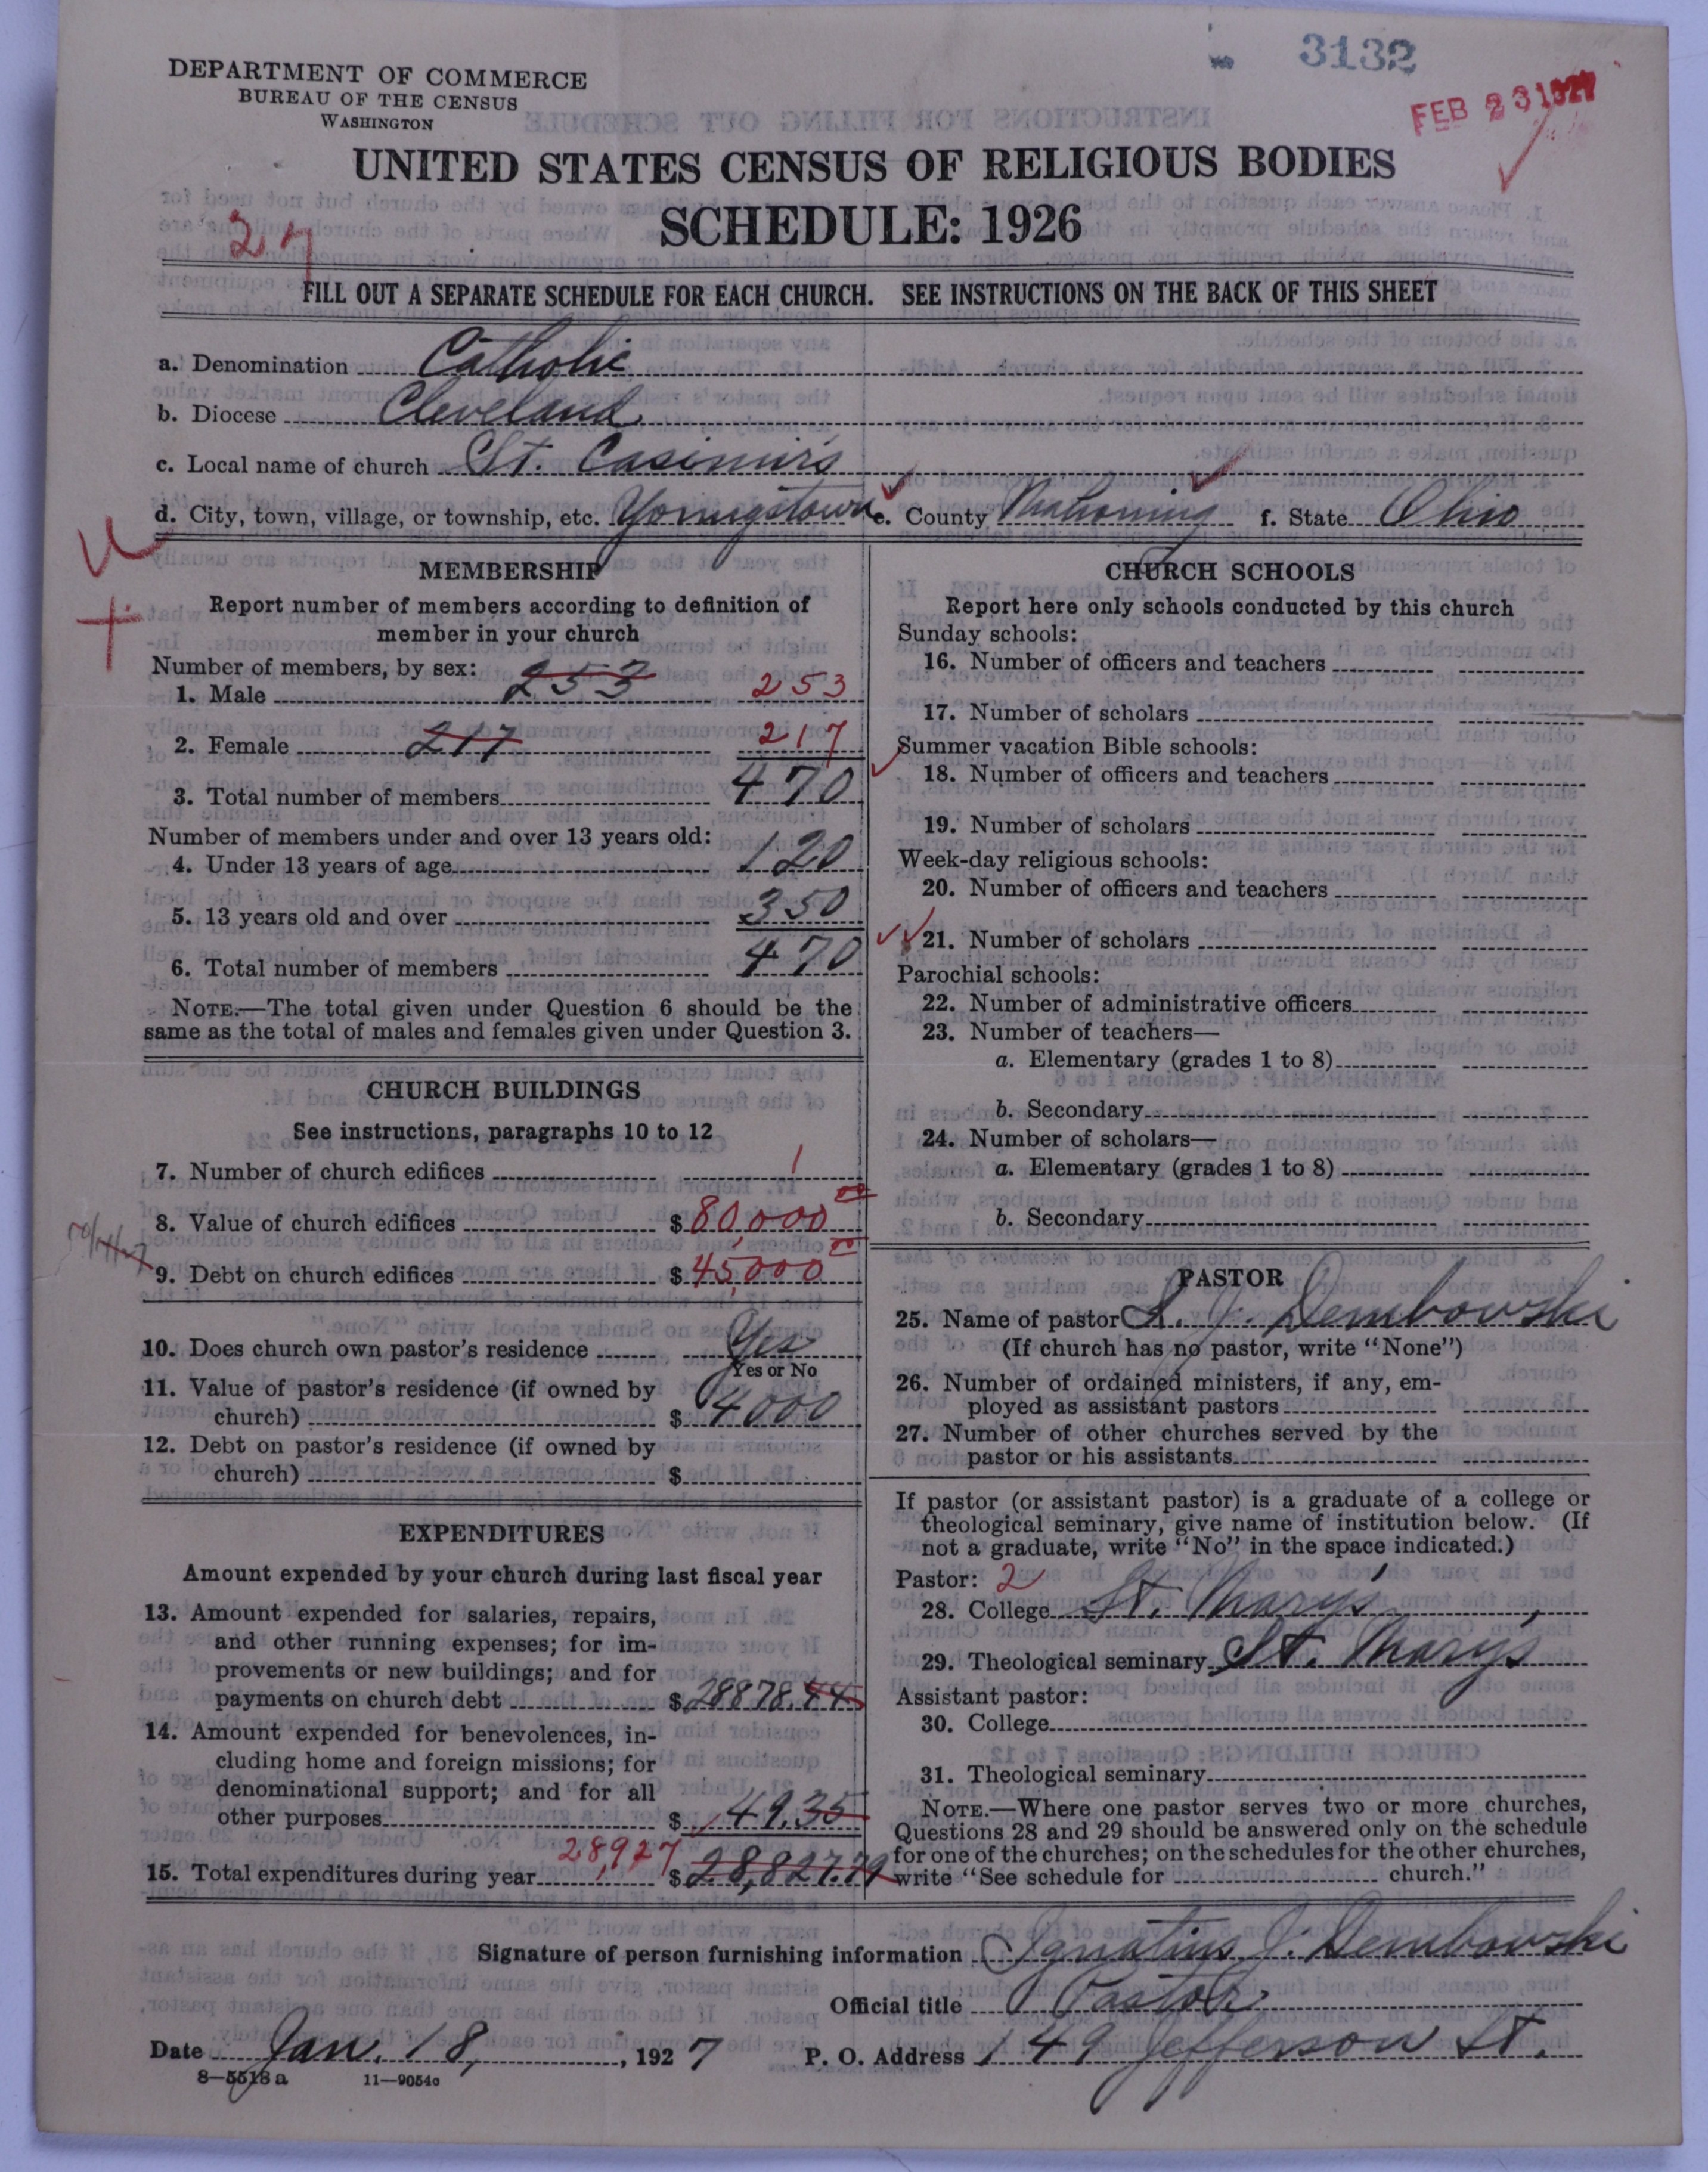 3132
FEB 23 1927
DEPARTMENT OF COMMERCE
BUREAU OF THE CENSUS
WASHINGTON
UNITED STATES CENSUS OF RELIGIOUS BODIES
SCHEDULE: 1926
27
FILL OUT A SEPARATE SCHEDULE FOR EACH CHURCH. SEE INSTRUCTIONS ON THE BACK OF THIS SHEET
a. Denomination Catholic
b. Diocese Cleveland
c. Local name of church St. Casimir's
d. City, town, village, or township, etc. Youngstown e. County Mahoning f. State Ohio
MEMBERSHIP
Report number of members according to definition of
member in your church
Number of members, by sex:
1. Male 253 253
2. Female 217 217
3. Total number of members 470
Number of members under and over 13 years old:
4. Under 13 years of age 120
5. 13 years old and over 350
6. Total number of members 470
NOTE.—The total given under Question 6 should be the
same as the total of males and females given under Question 3.
CHURCH BUILDINGS
See instructions, paragraphs 10 to 12
7. Number of church edifices 1
8. Value of church edifices $ 80,000 00
9. Debt on church edifices $ 45,000 00
10. Does church own pastor's residence Yes
Yes or No
11. Value of pastor's residence (if owned by
church) $ 4000
12. Debt on pastor's residence (if owned by
church) $
EXPENDITURES
Amount expended by your church during last fiscal year
13. Amount expended for salaries, repairs,
and other running expenses; for im-
provements or new buildings; and for
payments on church debt $ 28878.44
14. Amount expended for benevolences, in-
cluding home and foreign missions; for
denominational support; and for all
other purposes $ 49.35
28,927
15. Total expenditures during year $ 28,827.79
CHURCH SCHOOLS
Report here only schools conducted by this church
Sunday schools:
16. Number of officers and teachers
17. Number of scholars
Summer vacation Bible schools:
18. Number of officers and teachers
19. Number of scholars
Week-day religious schools:
20. Number of officers and teachers
21. Number of scholars
Parochial schools:
22. Number of administrative officers
23. Number of teachers—
a. Elementary (grades 1 to 8)
b. Secondary
24. Number of scholars—
a. Elementary (grades 1 to 8)
b. Secondary
PASTOR
25. Name of pastor I. J. Dembowski
(If church has no pastor, write "None")
26. Number of ordained ministers, if any, em-
ployed as assistant pastors
27. Number of other churches served by the
pastor or his assistants
If pastor (or assistant pastor) is a graduate of a college or
theological seminary, give name of institution below. (If
not a graduate, write "No" in the space indicated.)
Pastor: 2
28. College St. Mary's
29. Theological seminary St. Mary's
Assistant pastor:
30. College
31. Theological seminary
NOTE.—Where one pastor serves two or more churches,
Questions 28 and 29 should be answered only on the schedule
for one of the churches; on the schedules for the other churches,
write "See schedule for church."
Signature of person furnishing information Ignatius J. Dembowski
Official title Pastor
Date Jan. 18, 1927 P. O. Address 149 Jefferson St.
8—5518a 11—9054c